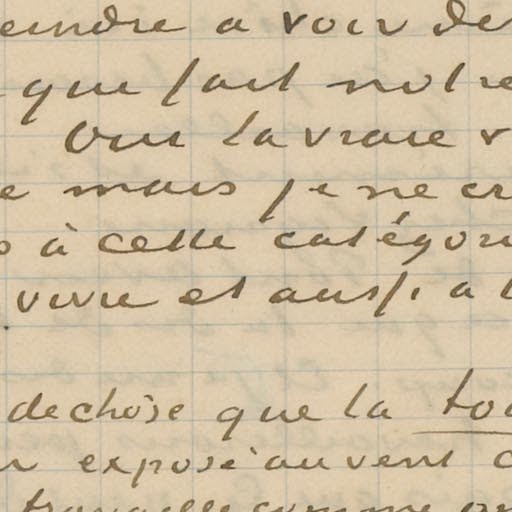 eindre a voir de
que fait notre
Oui la vraie v
e mais je ne cr
à cette catégori
vivre et aussi a l
de chose que la to
exposé au vent
travaille comme